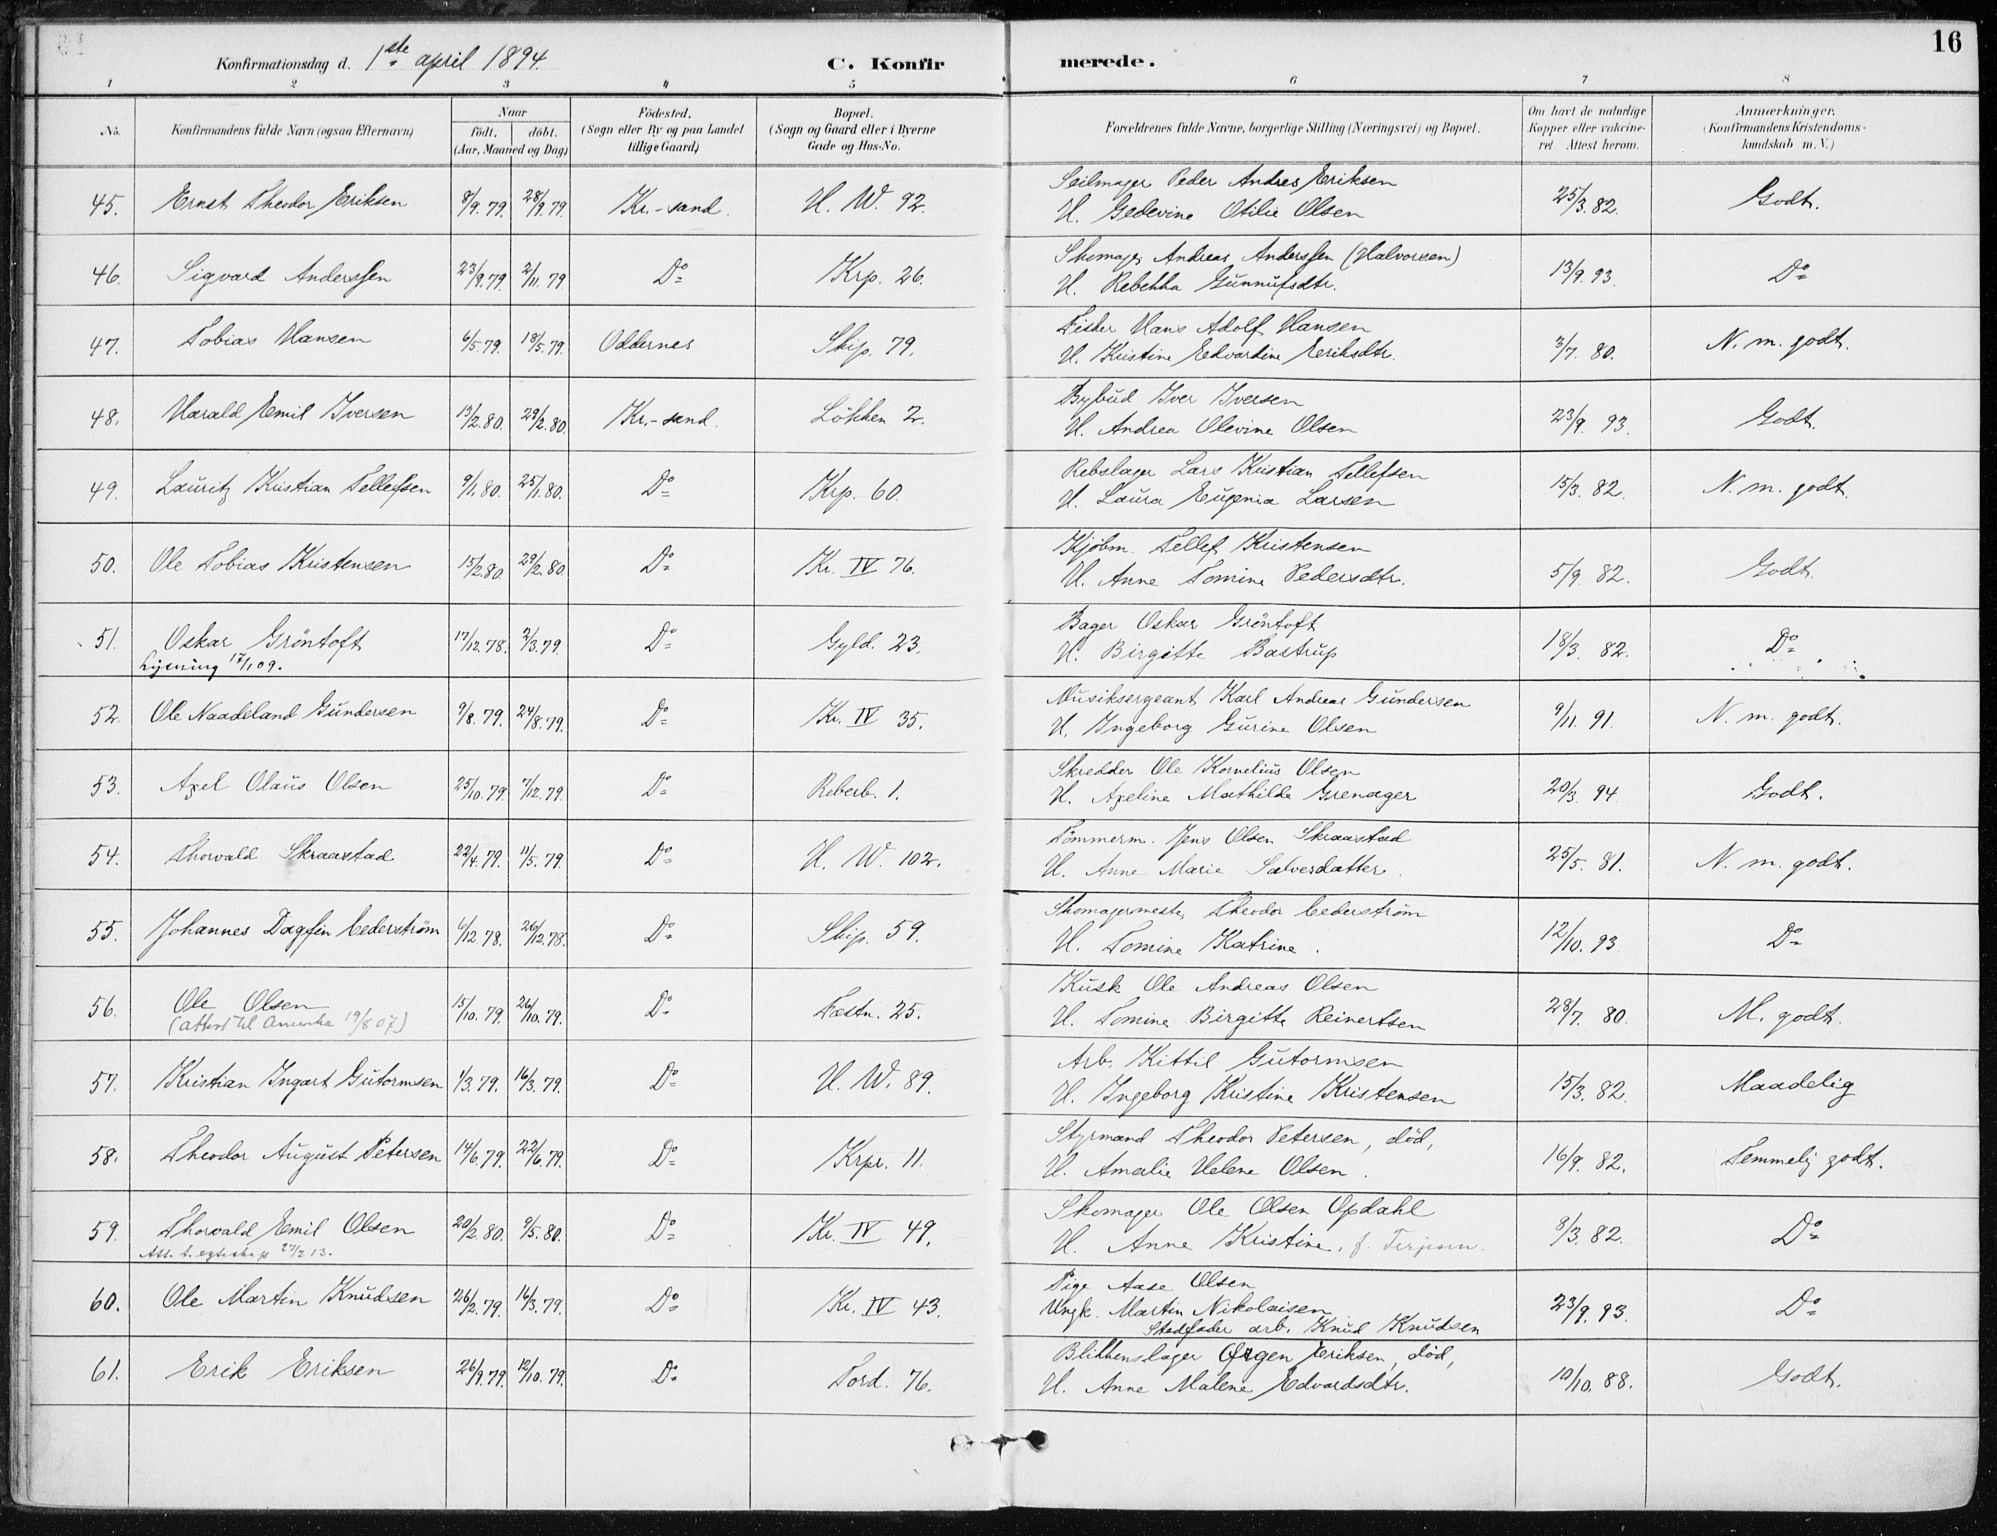 16
Konfirmationsdag d. 1ste april 1894.
C. Konfirmerede.
1 2 3 4 5 6 7 8
No. Konfirmandens fulde Navn (ogsaa Efternavn) Naar födt. döbt. (Aar, Maaned og Dag) Födested. (Sogn eller By og paa Landet tillige Gaard) Bopæl. (Sogn og Gaard eller i Byerne Gade og Hus-No. Forældrenes fulde Navne, borgerlige Stilling (Næringsvei) og Bopæl. Om havt de naturlige Kopper eller vakcineret Attest herom. Anmærkninger. (Konfirmandens Kristendomskundskab m. V.)
45. Ernst Theodor Eriksen 8/9.79. 28/9.79. Kr.-sand. H. W. 92. Seilmager Peder Andres Eriksen 25/3.82. Godt.
H. Gedevine Otilie Olsen
46. Sigvard Anderssen 23/9.79. 2/11.79. Do Krp. 26. Skomager Andreas Anderssen (Halvorsen) 13/9.93. Do
H. Rebekka Gunnufsdtr.
47. Tobias Hansen 6/5.79. 18/5.79. Oddernes Skip. 79. Fisker Hans Adolf Hansen 3/7.80. N. m. godt.
H. Kristine Edvardine Eriksdtr.
48. Harald Emil Iversen 13/2.80. 29/2.80. Kr.-sand. Lökken 2. Bybud Iver Iversen 23/9.93. Godt.
H. Andrea Olevine Olsen
49. Lauritz Kristian Tellefsen 9/1.80. 25/1.80. Do Krp. 60. Rebslager Lars Kristian Tellefsen 15/3.82. N. m. godt.
H. Laura Eugenia Larsen
50. Ole Tobias Kristensen 15/2.80. 29/2.80. Do Kr. IV 76. Kjöbm. Tellef Kristensen 5/9.82. Godt.
H. Anne Tomine Pedersdtr.
51. Oskar Gröntoft 17/12.78. 2/3.79. Do Gyld. 23. Bager Oskar Gröntoft 18/3.82. Do
Lysning 17/1 09. H. Birgitte Bastrup
52. Ole Naadeland Gundersen 9/8.79. 24/8.79. Do Kr. IV 35. Musiksergeant Karl Andreas Gundersen 9/11.91. N. m. godt.
H. Ingeborg Gurine Olsen
53. Axel Olaus Olsen 25/10.79. 7/12.79. Do Reberb. 1. Skredder Ole Kornelius Olsen 20/3.94. Godt.
H. Axeline Mathilde Grenager
54. Thorvald Skraastad 22/4.79. 11/5.79. Do H. W. 102. Tömmerm. Jens Olsen Skraastad 25/5.81. N. m. godt.
H. Anne Marie Salvesdatter.
55. Johannes Dagfin Cederström 6/12.78. 26/12.78. Do Skip. 59. Skomagermester Theodor Cederström 12/10.93 Do
H. Tomine Katrine.
56. Ole Olsen 15/10.79. 26/10.79. Do Fæstn. 25. Kusk Ole Andreas Olsen 28/7.80. M. godt.
(attest til Amerika 19/8 07) H. Tomine Birgitte Reinertsen
57. Kristian Ingart Gutormsen 1/3.79. 16/3.79. Do H. W. 89. Arb. Kittil Gutormsen 15/3.82. Maadelig
H. Ingeborg Kristine Kristensen
58. Theodor August Petersen 14/6.79. 22/6.79. Do Krpr. 11. Styrmand Theodor Petersen, död, 16/9.82. Temmelig godt.
H. Amalie Helene Olsen.
59. Thorvald Emil Olsen 20/2.80. 9/5.80. Do Kr. IV 49. Skomager Ole Olsen Opdahl 8/3.82. Do
Att. t. egteskap 13. H. Anne Kristine, f. Terjesen.
60. Ole Martin Knudsen 26/2.79. 16/3.79. Do Kr. IV 43. Pige Aase Olsen 23/9.93. Do
Ungk. Martin Nikolaisen
Stedfader arb. Knud Knudsen
61. Erik Eriksen 26/9.79. 12/10.79. Do Tord. 76. Blikkenslager Örgen Eriksen, död, 10/10.88. Godt.
H. Anne Malene Edvardsdtr.